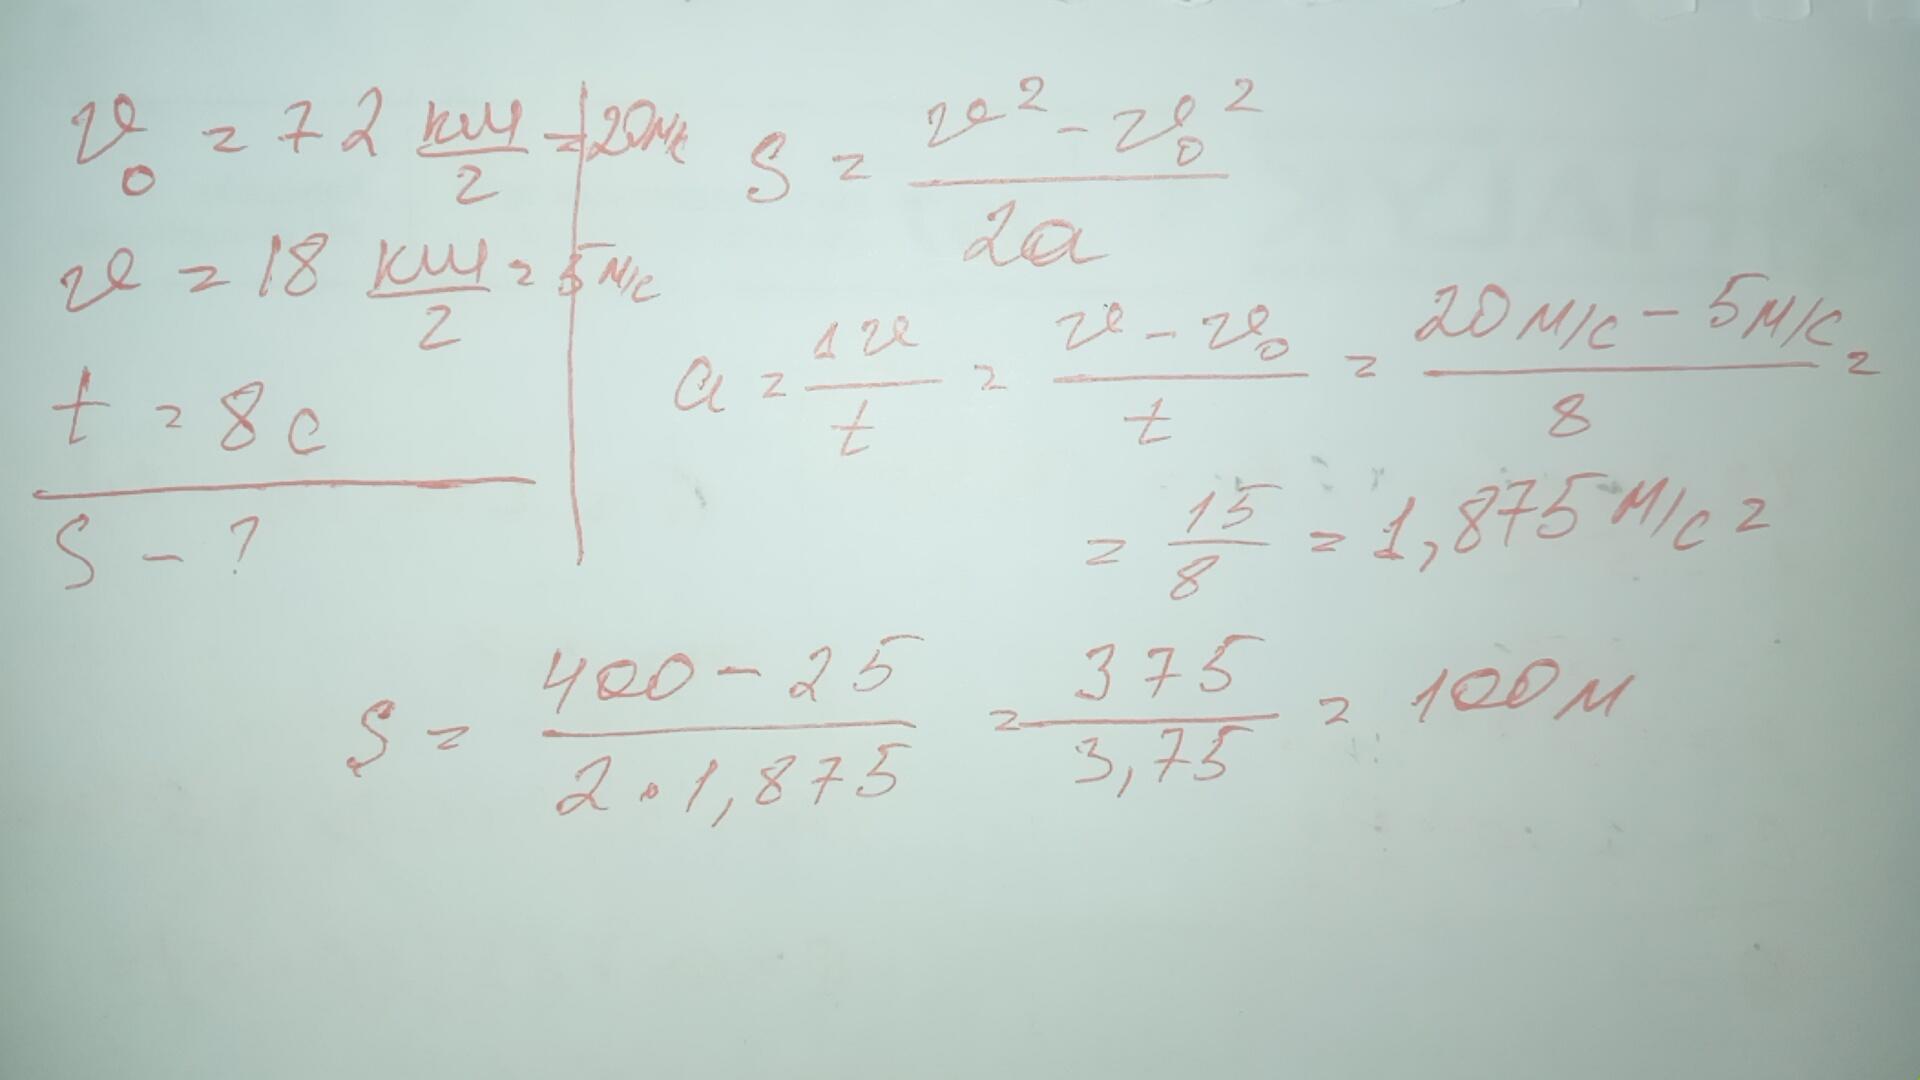 v₀ = 72 км/г = 20 м/с
v = 18 км/г = 5 м/с
t = 8 с
S - ?
S = (v² - v₀²)/(2a)
a = 1v/t = (v - v₀)/t = (20 м/с - 5 м/с)/8 =
= 15/8 = 1,875 м/с²
S = (400 - 25)/(2 · 1,875) = 375/3,75 = 100 м